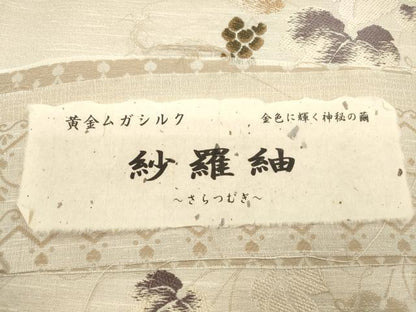 黄金ムガシルク 金色に輝く神秘の繭
紗羅紬
～さらつむぎ～